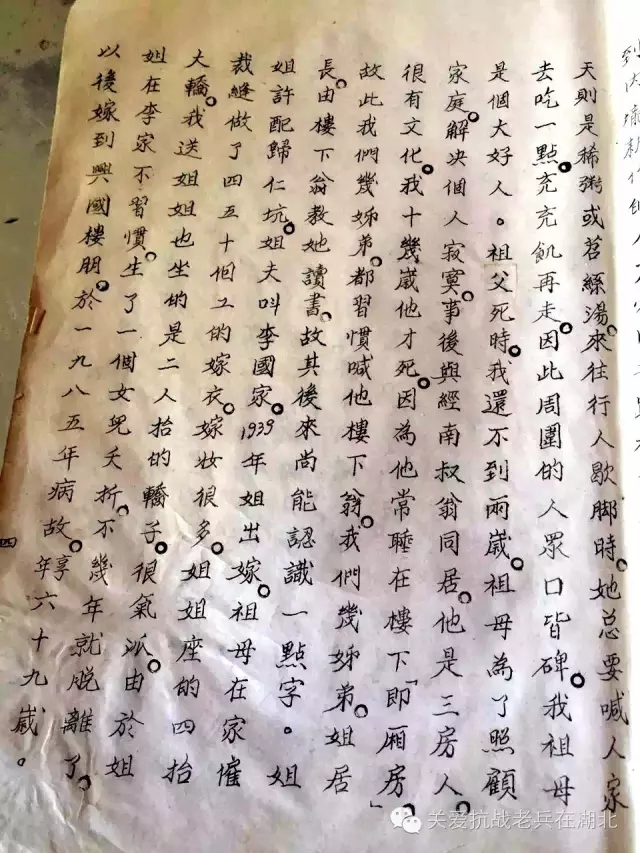 天則是稀粥或苕絲湯。來往行人歇脚時。她总要喊人家
去吃一點。充充飢再走。因此周圍的人眾口皆碑。我祖母
是個大好人。祖父死時。我還不到兩歲。祖母為了照顧
家庭。解决個人寂寞。事後與經南叔翁同居。他是三房人。
很有文化。我十幾歲他才死。因為他常睡在樓下「即廂房」
故此我們幾姊弟。都習慣喊他樓下翁。我們幾姊弟。姐居
長。由樓下翁教她讀書。故其後來尚能認識一點字。姐
姐許配歸仁坑。姐夫呌李國家。1939年姐出嫁。祖母在家催
裁縫做了四五十個工的嫁衣。嫁妝很多。姐姐座的四抬
大轎。我送姐姐也坐的是二人抬的轎子。很氣派。由於姐
姐在李家不習慣。生了一個女兒夭折。不幾年就脫離了。
以後嫁到興國樓朋。於一九八五年病故。享年六十九歲。
四
关爱抗战老兵在湖北